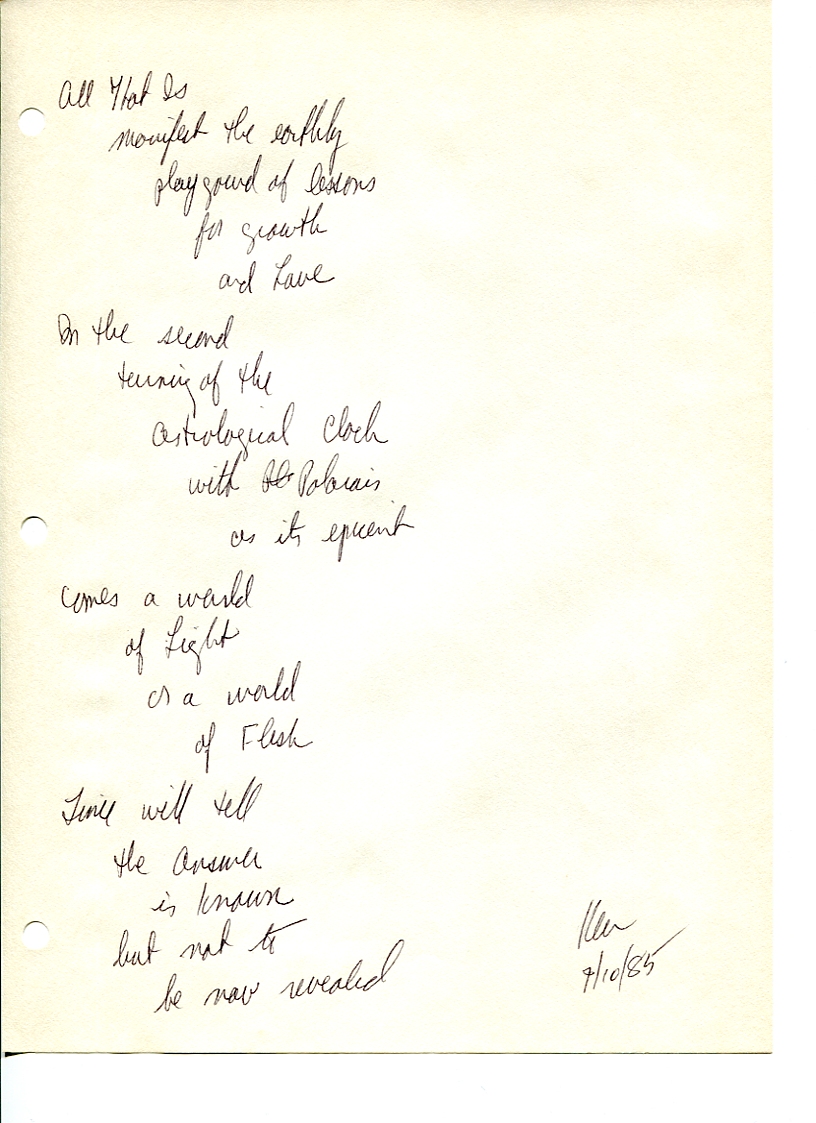 All That Is
manifest the earthly
playground of lessons
for growth
and Love
In the second
turning of the
astrological clock
with Polarais
as its epicent
comes a world
of Light
or a world
of Flesh
Time will tell
the answer
is known
but not to
be now revealed
Ken
9/10/85